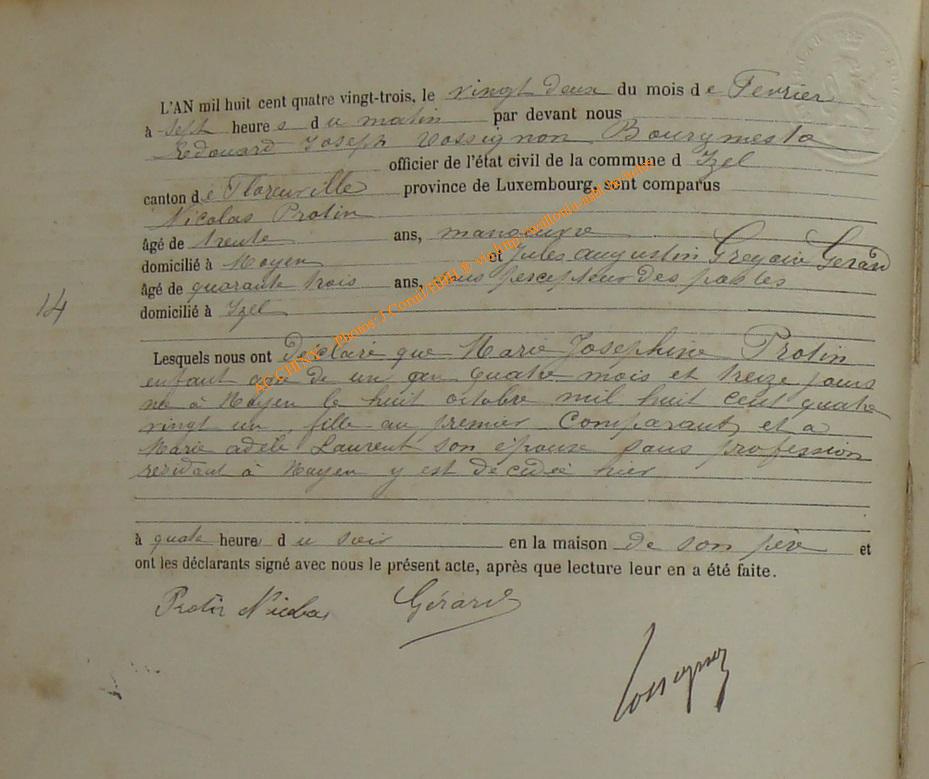 L'AN mil huit cent quatre vingt-trois, le vingt deux du mois de Fevrier
à sept heures du matin par devant nous
Edouard Joseph Rossignon Bourgmestre
officier de l'état civil de la commune d Izel
canton de Florenville province de Luxembourg, sont comparus
Nicolas Protin
âgé de trente ans, manoeuvre
domicilié à Moyen et Jules augustin Gregoire Gerard
âgé de quarante trois ans, sous percepteur des postes
domicilié à Izel
14
Lesquels nous ont declaré que Marie Josephine Protin
enfant agé de un an quatre mois et treize jours
né à Moyen le huit octobre mil huit cent quatre
vingt un, fille au premier comparant, et a
Marie adèle Laurent son épouse sans profession
residant à Moyen y est decedée hier
à quatre heures du soir en la maison de son père et
ont les déclarants signé avec nous le présent acte, après que lecture leur en a été faite.
Protin Nicolas Gérard
Rossignon